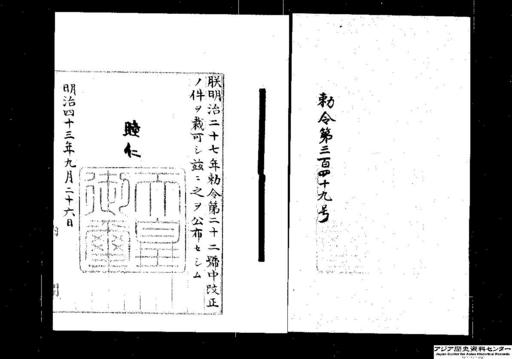 勅令第三百四十九号
朕明治二十七年勅令第二十二號中改正
ノ件ヲ裁可シ茲ニ之ヲ公布セシム
睦仁
天皇御璽
明治四十三年九月二十六日
アジア歴史資料センター
Japan Center for Asian Historical Records